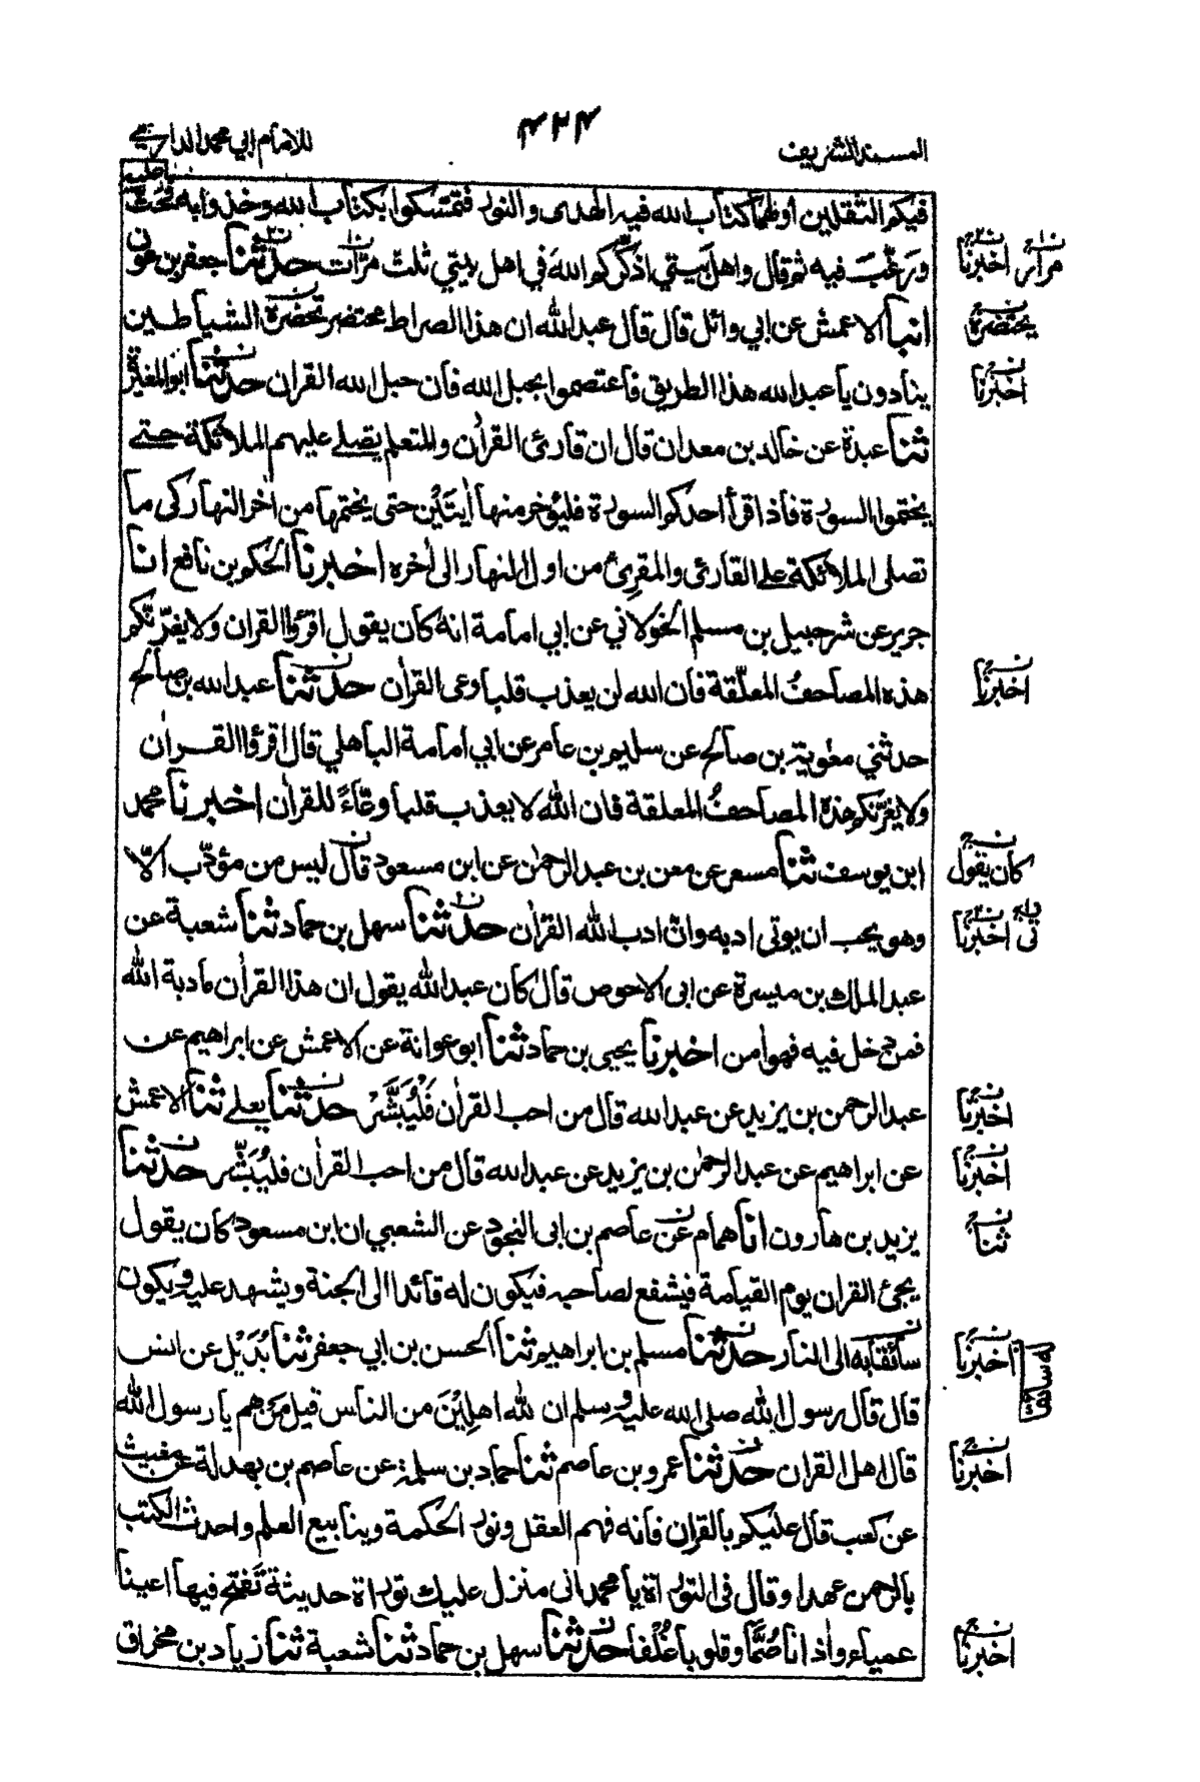 المسند الشريف
٤٢٤
للامام ابي محمد الدارمي
فيكم الثقلين اولهما كتاب الله فيه الهدى والنور فتمسكوا بكتاب الله وخذوا به فحث عليه
ورغب فيه ثم قال واهل بيتي اذكركم الله في اهل بيتي ثلث مرات حدثنا جعفر بن عون
مرار اخبرنا
انبا الاعمش عن ابي وائل قال قال عبد الله ان هذا الصراط محتضر تحضره الشياطين
يحتضره
ينادون يا عبد الله هذا الطريق فاعتصموا بحبل الله فان حبل الله القران حدثنا ابو المغيرة
اخبرنا
ثنا عبدة عن خالد بن معدان قال ان قارئ القران والمتعلم يصلى عليهم الملائكة حتى
يختموا السورة فاذا قرأ احدكم السورة فليؤخر منها اٰيتَيْن حتى يختمها من اٰخر النهار كى ما
تصلى الملائكة على القارئ والمقرئ من اول النهار الى اٰخره اخبرنا الحكم بن نافع انا
جرير عن شرحبيل بن مسلم الخولاني عن ابي امامة انه كان يقول اقرؤا القران ولا يغرنّكم
هذه المصاحفُ المعلّقة فان الله لن يعذب قلبا وعى القراٰن حدثنا عبد الله بن صالح
اخبرنا
حدثني معٰوية بن صالح عن سليم بن عامر عن ابي امامة الباهلي قال اقرؤا القراٰن
ولا يغرّنكم هذه المصاحفُ المعلقة فان الله لا يعذب قلبا وعّاءً للقراٰن اخبرنا محمد
ابن يوسف ثنا مسعر عن معن بن عبد الرحمٰن عن ابن مسعود قال ليس من مؤدّب الّا
كان يقول
وهو يحب ان يوتى ادبه وانّ ادب الله القراٰن حدثنا سهل بن حماد ثنا شعبة عن
اخبرنا
عبد الملك بن ميسرة عن ابي الاحوص قال كان عبد الله يقول ان هذا القراٰن مادبة الله
فمن دخل فيه فهو اٰمن اخبرنا يحيى بن حماد ثنا ابو عوانة عن الاعمش عن ابراهيم عن
عبد الرحمن بن يزيد عن عبد الله قال من احب القراٰن فَلْيُبَشَّرْ حدثنا يعلى ثنا الاعمش
اخبرنا
عن ابراهيم عن عبد الرحمٰن بن يزيد عن عبد الله قال من احب القراٰن فليُبَشِّر حدثنا
اخبرنا
يزيد بن هارون انا همام عن عاصم بن ابى النجود عن الشعبي ان ابن مسعود كان يقول
ثنا
يجئ القران يوم القيامة فيشفع لصاحبه فيكون له قائدا الى الجنة ويشهد عليه ويكون
سائقا به الى النار حدثنا مسلم بن ابراهيم ثنا الحسن بن ابي جعفر ثنا بُدَيْل عن انس
اخبرنا
له سائقا
قال قال رسول الله صلى الله عليه وسلم ان لله اهلِيْنَ من الناس قيل مَن هم يا رسول الله
قال اهل القران حدثنا عمرو بن عاصم ثنا حماد بن سلمة عن عاصم بن بهدلة عن مغيث
اخبرنا
عن كعب قال عليكم بالقران فانه فهم العقل ونور الحكمة وينابيع العلم واحدث الكتب
بالرحمن عهدا وقال في التوراة يا محمد انى منزل عليك توراة حديثة تَفْتَح فيها اعينا
عمياء واٰذانا صُمًّا وقلوبا غُلْفا حدثنا سهل بن حماد ثنا شعبة ثنا زياد بن مخراق
اخبرنا